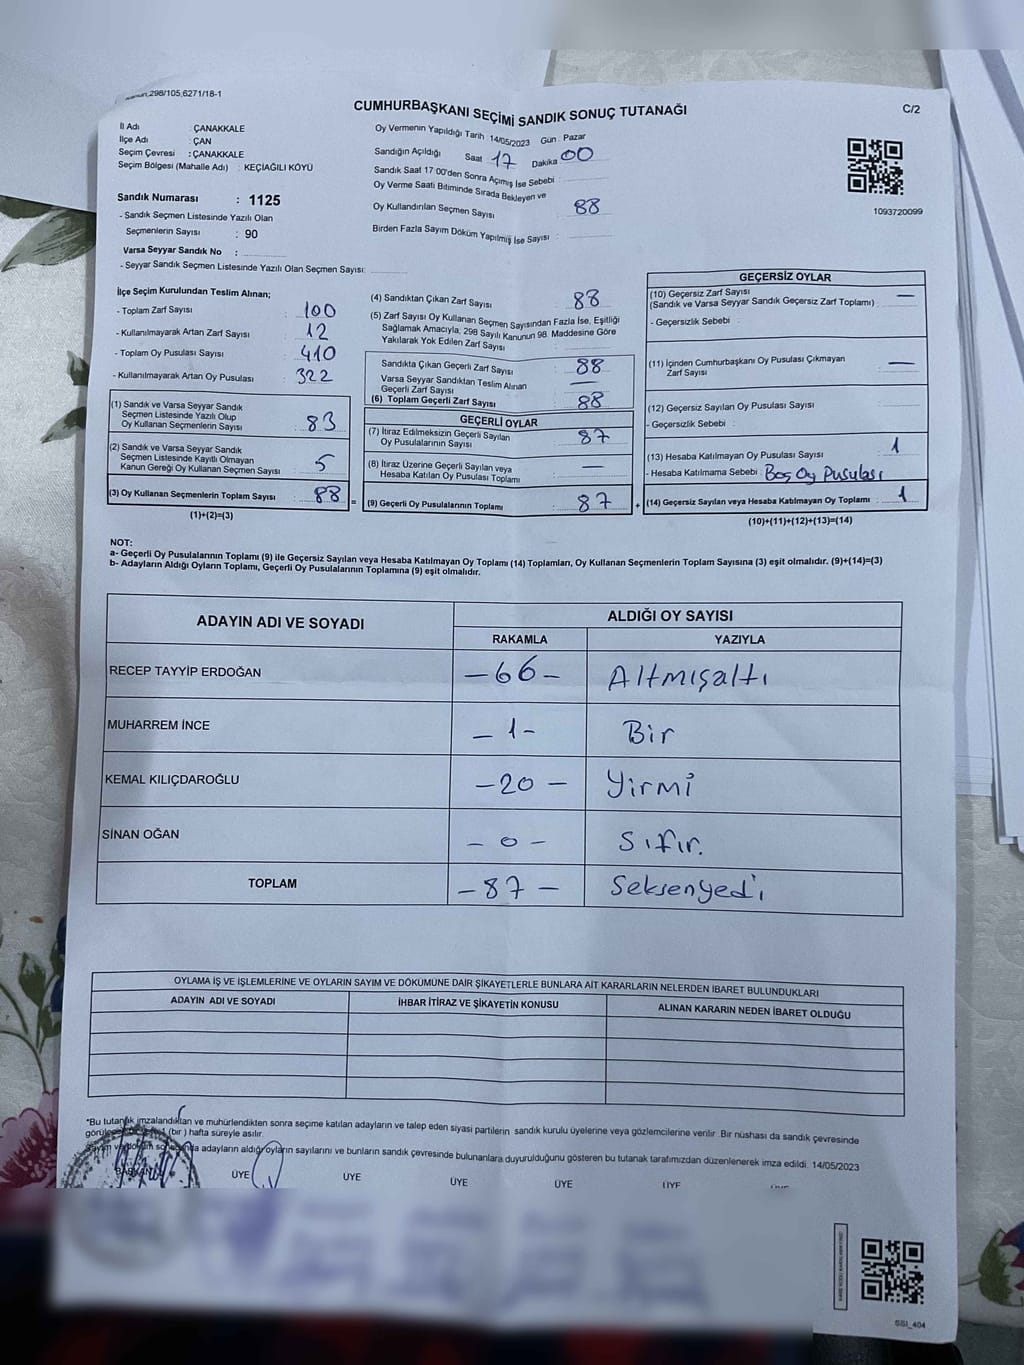 298/105,6271/18-1
CUMHURBAŞKANI SEÇİMİ SANDIK SONUÇ TUTANAĞI
C/2
İl Adı : ÇANAKKALE
İlçe Adı : ÇAN
Seçim Çevresi : ÇANAKKALE
Seçim Bölgesi (Mahalle Adı) : KEÇİAĞILI KÖYÜ
Sandık Numarası : 1125
- Sandık Seçmen Listesinde Yazılı Olan
Seçmenlerin Sayısı : 90
Varsa Seyyar Sandık No :
- Seyyar Sandık Seçmen Listesinde Yazılı Olan Seçmen Sayısı:
Oy Vermenin Yapıldığı Tarih 14/05/2023 Gün : Pazar
Sandığın Açıldığı Saat 17 Dakika 00
Sandık Saat 17:00'den Sonra Açımış İse Sebebi :
Oy Verme Saati Bitiminde Sırada Bekleyen ve
Oy Kullandırılan Seçmen Sayısı 88
Birden Fazla Sayım Döküm Yapılmış İse Sayısı :
1093720099
İlçe Seçim Kurulundan Teslim Alınan;
- Toplam Zarf Sayısı : 100
- Kullanılmayarak Artan Zarf Sayısı : 12
- Toplam Oy Pusulası Sayısı : 410
- Kullanılmayarak Artan Oy Pusulası : 322
(1) Sandık ve Varsa Seyyar Sandık
Seçmen Listesinde Yazılı Olup
Oy Kullanan Seçmenlerin Sayısı : 83
(2) Sandık ve Varsa Seyyar Sandık
Seçmen Listesinde Kayıtlı Olmayan
Kanun Gereği Oy Kullanan Seçmen Sayısı : 5
(3) Oy Kullanan Seçmenlerin Toplam Sayısı : 88
(1)+(2)=(3)
=
(4) Sandıktan Çıkan Zarf Sayısı : 88
(5) Zarf Sayısı Oy Kullanan Seçmen Sayısından Fazla İse, Eşitliği
Sağlamak Amacıyla; 298 Sayılı Kanunun 98. Maddesine Göre
Yakılarak Yok Edilen Zarf Sayısı :
Sandıkta Çıkan Geçerli Zarf Sayısı : 88
Varsa Seyyar Sandıktan Teslim Alınan
Geçerli Zarf Sayısı : —
(6) Toplam Geçerli Zarf Sayısı : 88
GEÇERLİ OYLAR
(7) İtiraz Edilmeksizin Geçerli Sayılan
Oy Pusulalarının Sayısı : 87
(8) İtiraz Üzerine Geçerli Sayılan veya
Hesaba Katılan Oy Pusulası Toplamı : —
(9) Geçerli Oy Pusulalarının Toplamı : 87
+
GEÇERSİZ OYLAR
(10) Geçersiz Zarf Sayısı
(Sandık ve Varsa Seyyar Sandık Geçersiz Zarf Toplamı) : —
- Geçersizlik Sebebi :
(11) İçinden Cumhurbaşkanı Oy Pusulası Çıkmayan
Zarf Sayısı : —
(12) Geçersiz Sayılan Oy Pusulası Sayısı :
- Geçersizlik Sebebi :
(13) Hesaba Katılmayan Oy Pusulası Sayısı : 1
- Hesaba Katılmama Sebebi : Boş Oy Pusulası
(14) Geçersiz Sayılan veya Hesaba Katılmayan Oy Toplamı : 1
(10)+(11)+(12)+(13)=(14)
NOT:
a- Geçerli Oy Pusulalarının Toplamı (9) ile Geçersiz Sayılan veya Hesaba Katılmayan Oy Toplamı (14) Toplamları, Oy Kullanan Seçmenlerin Toplam Sayısına (3) eşit olmalıdır. (9)+(14)=(3)
b- Adayların Aldığı Oyların Toplamı, Geçerli Oy Pusulalarının Toplamına (9) eşit olmalıdır.
ADAYIN ADI VE SOYADI
ALDIĞI OY SAYISI
RAKAMLA YAZIYLA
RECEP TAYYİP ERDOĞAN -66- Altmışaltı
MUHARREM İNCE -1- Bir
KEMAL KILIÇDAROĞLU -20- Yirmi
SİNAN OĞAN -0- Sıfır.
TOPLAM -87- Seksenyedi
OYLAMA İŞ VE İŞLEMLERİNE VE OYLARIN SAYIM VE DÖKÜMÜNE DAİR ŞİKAYETLERLE BUNLARA AİT KARARLARIN NELERDEN İBARET BULUNDUKLARI
ADAYIN ADI VE SOYADI
İHBAR İTİRAZ VE ŞİKAYETİN KONUSU
ALINAN KARARIN NEDEN İBARET OLDUĞU
*Bu tutanak imzalandıktan ve mühürlendikten sonra seçime katılan adayların ve talep eden siyasi partilerin sandık kurulu üyelerine veya gözlemcilerine verilir. Bir nüshası da sandık çevresinde
(bir) hafta süreyle asılır.
adayların aldığı oyların sayılarını ve bunların sandık çevresinde bulunanlara duyurulduğunu gösteren bu tutanak tarafımızdan düzenlenerek imza edildi. 14/05/2023
BAŞKAN ÜYE ÜYE ÜYE ÜYE ÜYE
SSI_404